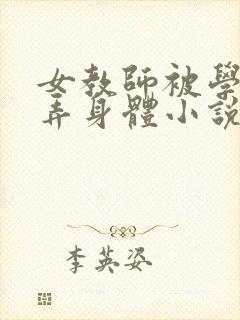 女教師被學
弄身體小說
李英姿